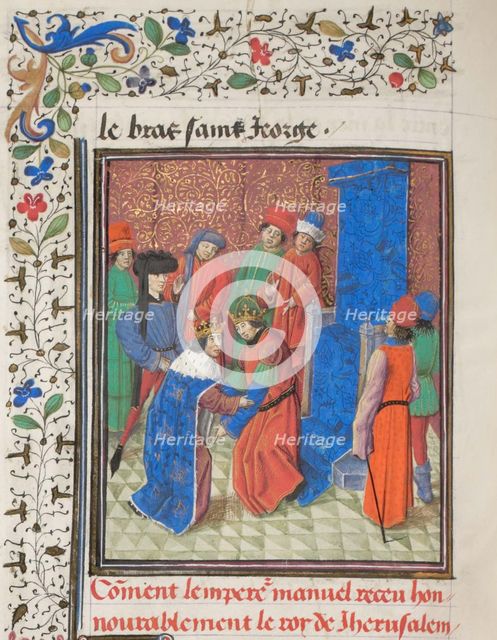 le bras saint George .
Heritage Heritage
Heritage Heritage Heritage
Heritage Heritage
Cõment lempereˀ manuel receu hon⸗
nourablement le roy de Jherusalem